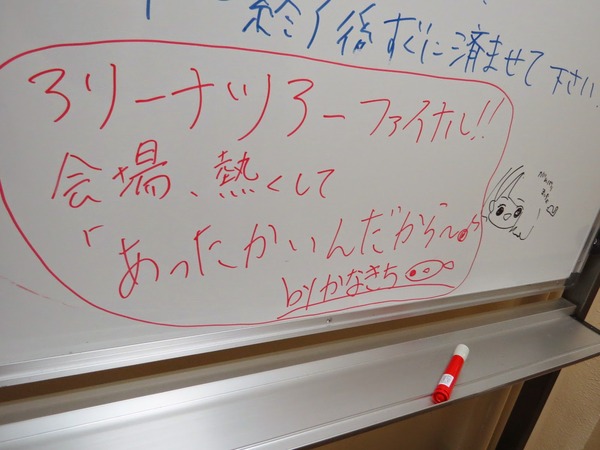 終了後すぐに済ませて下さい
アリーナツアーファイナル!!
会場、熱くして
「あったかいんだから〜♪
byかなきち